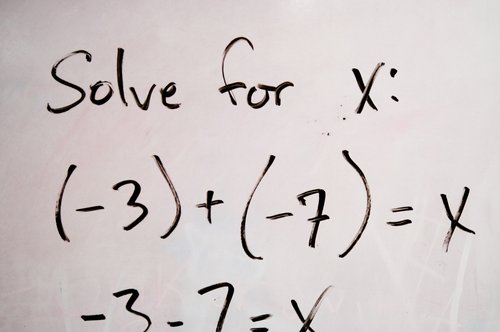 Solve for x:
(-3) + (-7) = x
-3 - 7 = x